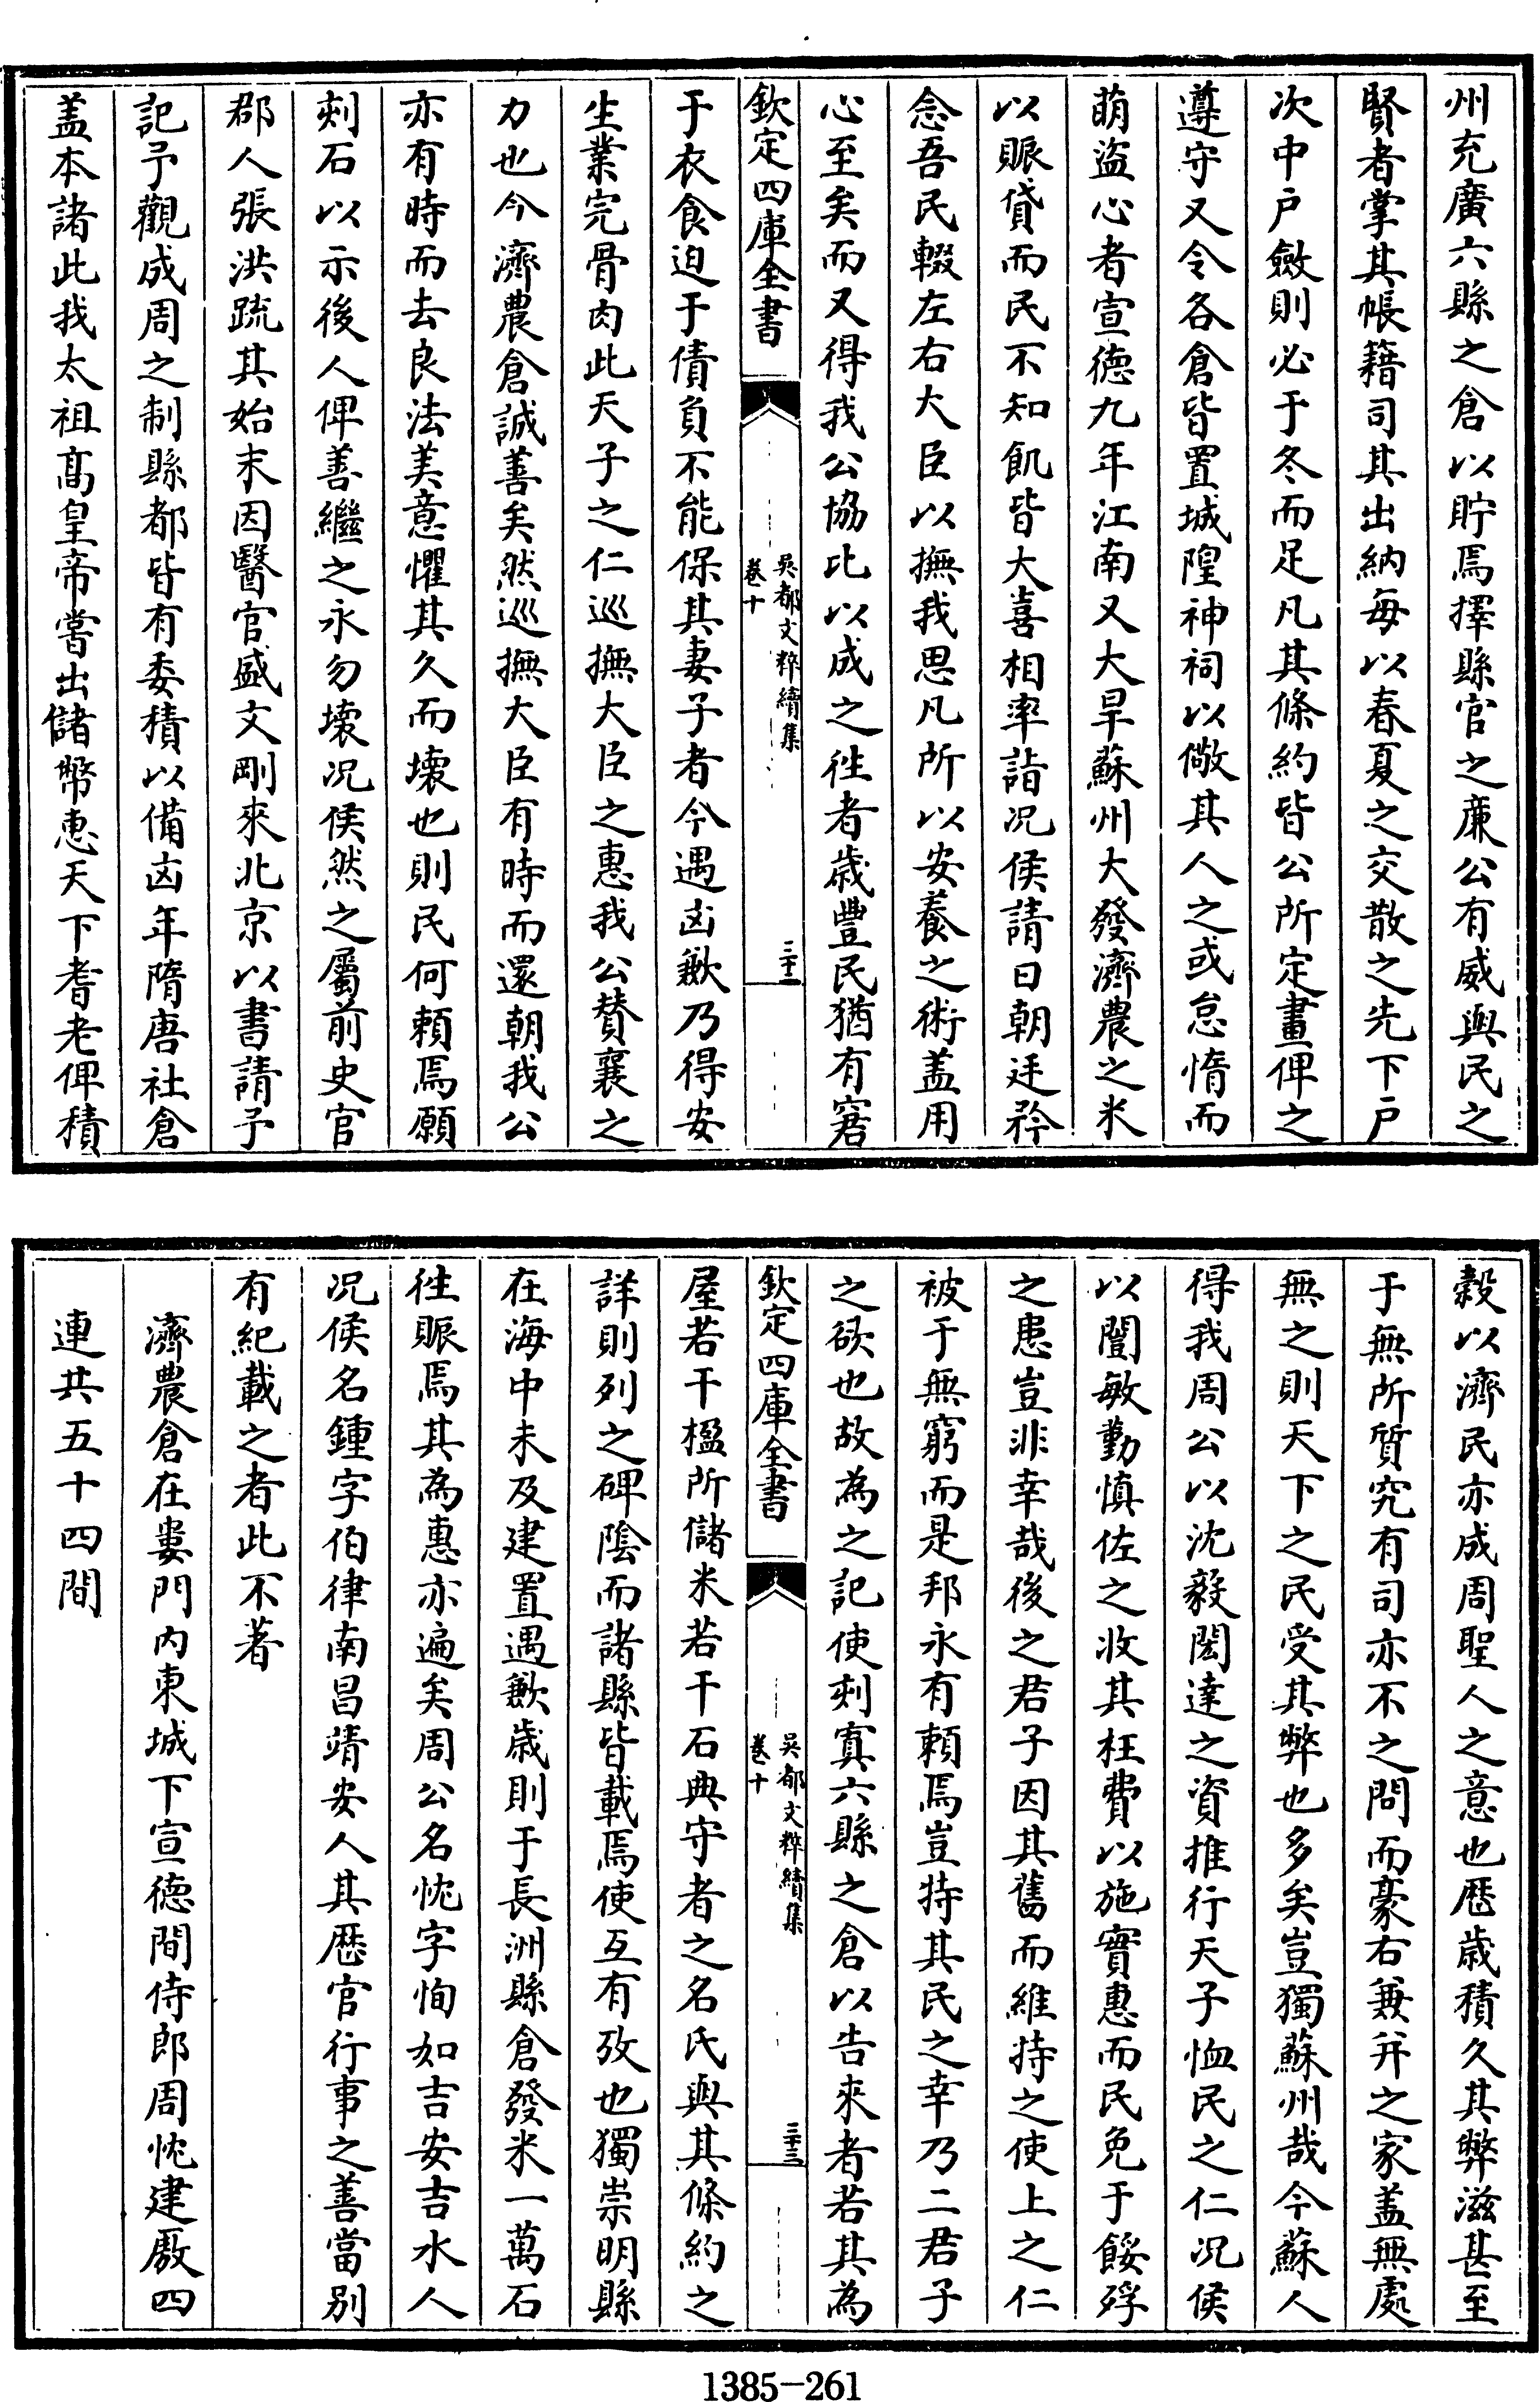 州充廣六縣之倉以貯焉擇縣官之亷公有威與民之
賢者掌其帳籍司其出納每以春夏之交散之先下户
次中户斂則必于冬而足凡其條約皆公所定畫俾之
遵守又令各倉皆置城隍神祠以儆其人之或怠惰而
萌盜心者宣徳九年江南又大旱蘇州大發濟農之米
以賑貸而民不知飢皆大喜相率詣况侯請曰朝廷矜
念吾民輟左右大臣以撫我思凡所以安養之術盖用
心至矣而又得我公協比以成之徃者歳豐民猶有窘
欽定四庫全書
吳都文粹續集
卷十
三十二
于衣食迫于債負不能保其妻子者今遇凶歉乃得安
生業完骨肉此天子之仁巡撫大臣之惠我公賛襄之
力也今濟農倉誠善矣然巡撫大臣有時而還朝我公
亦有時而去良法美意懼其久而壊也則民何頼焉願
刻石以示後人俾善繼之永勿壊况侯然之屬前史官
郡人張洪疏其始末因醫官盛文剛來北京以書請予
記予觀成周之制縣都皆有委積以備凶年隋唐社倉
盖本諸此我太祖髙皇帝嘗出儲幣惠天下耆老俾積
穀以濟民亦成周聖人之意也厯歳積久其弊滋甚至
于無所質究有司亦不之問而豪右兼并之家盖無處
無之則天下之民受其弊也多矣豈獨蘇州哉今蘇人
得我周公以沈毅閎達之資推行天子恤民之仁况侯
以闓敏勤慎佐之收其枉費以施實惠而民免于餒殍
之患豈非幸哉後之君子因其舊而維持之使上之仁
被于無窮而是邦永有頼焉豈特其民之幸乃二君子
之欲也故為之記使刻寘六縣之倉以告來者若其為
欽定四庫全書
吳都文粹續集
卷十
三十三
屋若干楹所儲米若干石典守者之名氏與其條約之
詳則列之碑隂而諸縣皆載焉使互有攷也獨崇明縣
在海中未及建置遇歉歳則于長洲縣倉發米一萬石
徃賑焉其為惠亦遍矣周公名忱字恂如吉安吉水人
况侯名鍾字伯律南昌靖安人其厯官行事之善當别
有紀載之者此不著
濟農倉在婁門内東城下宣徳間侍郎周忱建廒四
連共五十四間
1385-261